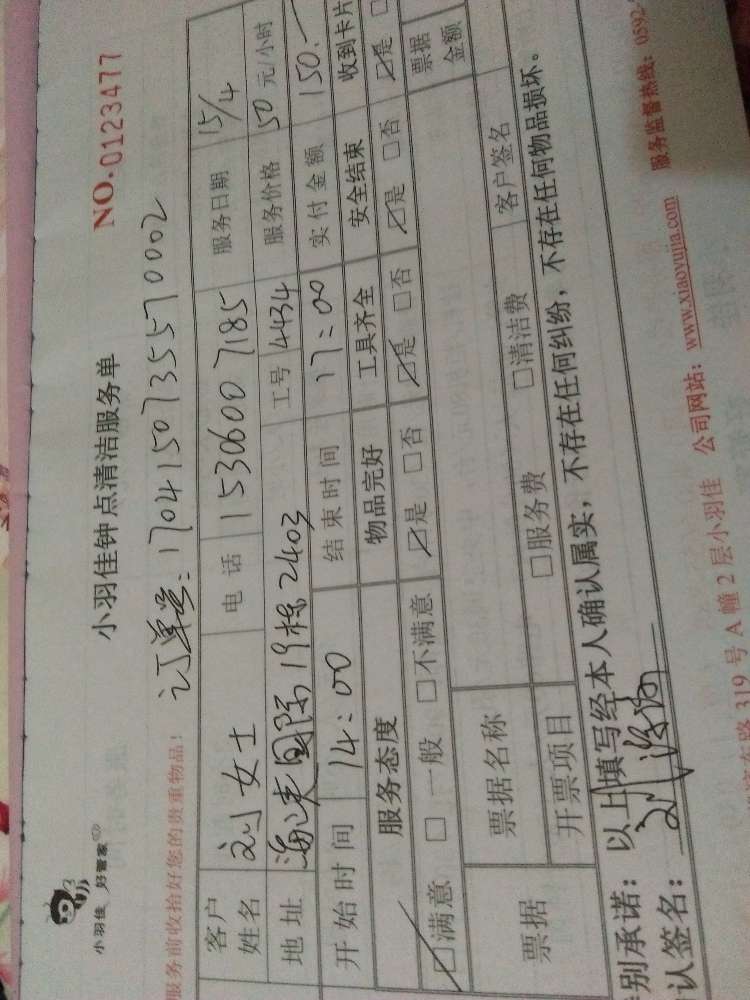 小羽佳 好管家
小羽佳钟点清洁服务单
NO.0123477
服务前收拾好您的贵重物品!
订单号:170415073557 0002
客户姓名 刘女士 电话 15306007185 服务日期 15/4
地址 19栋2403 工号 4434 服务价格 50元/小时
开始时间 14:00 结束时间 17:00 实付金额 150.-
服务态度 物品完好 工具齐全 安全结束 收到卡片
☑满意 □一般 □不满意 ☑是 □否 ☑是 □否 ☑是 □否 ☑是 □
票据 票据名称 票据金额
开票项目 □服务费 □清洁费 客户签名
别承诺:以上填写经本人确认属实,不存在任何纠纷,不存在任何物品损坏。
认签名:
路319号A幢2层小羽佳 公司网站:www.xiaoyujia.com 服务监督热线:0592-